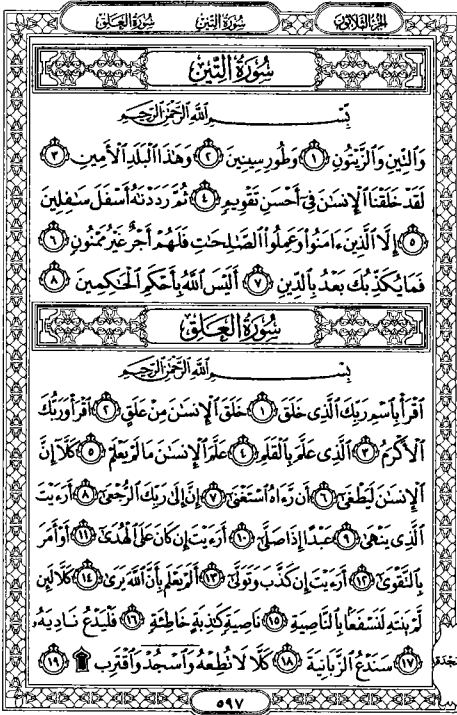 الجزء الثلاثون سورة التين سورة العلق
سُورَةُ التِّينِ
بِسْمِ ٱللَّهِ ٱلرَّحْمَٰنِ ٱلرَّحِيمِ
وَٱلتِّينِ وَٱلزَّيْتُونِ ١ وَطُورِ سِينِينَ ٢ وَهَٰذَا ٱلْبَلَدِ ٱلْأَمِينِ ٣
لَقَدْ خَلَقْنَا ٱلْإِنسَٰنَ فِىٓ أَحْسَنِ تَقْوِيمٍ ٤ ثُمَّ رَدَدْنَٰهُ أَسْفَلَ سَٰفِلِينَ
٥ إِلَّا ٱلَّذِينَ ءَامَنُوا۟ وَعَمِلُوا۟ ٱلصَّٰلِحَٰتِ فَلَهُمْ أَجْرٌ غَيْرُ مَمْنُونٍ ٦
فَمَا يُكَذِّبُكَ بَعْدُ بِٱلدِّينِ ٧ أَلَيْسَ ٱللَّهُ بِأَحْكَمِ ٱلْحَٰكِمِينَ ٨
سُورَةُ العَلَقِ
بِسْمِ ٱللَّهِ ٱلرَّحْمَٰنِ ٱلرَّحِيمِ
ٱقْرَأْ بِٱسْمِ رَبِّكَ ٱلَّذِى خَلَقَ ١ خَلَقَ ٱلْإِنسَٰنَ مِنْ عَلَقٍ ٢ ٱقْرَأْ وَرَبُّكَ
ٱلْأَكْرَمُ ٣ ٱلَّذِى عَلَّمَ بِٱلْقَلَمِ ٤ عَلَّمَ ٱلْإِنسَٰنَ مَا لَمْ يَعْلَمْ ٥ كَلَّآ إِنَّ
ٱلْإِنسَٰنَ لَيَطْغَىٰٓ ٦ أَن رَّءَاهُ ٱسْتَغْنَىٰٓ ٧ إِنَّ إِلَىٰ رَبِّكَ ٱلرُّجْعَىٰٓ ٨ أَرَءَيْتَ
ٱلَّذِى يَنْهَىٰ ٩ عَبْدًا إِذَا صَلَّىٰٓ ١٠ أَرَءَيْتَ إِن كَانَ عَلَى ٱلْهُدَىٰٓ ١١ أَوْ أَمَرَ
بِٱلتَّقْوَىٰٓ ١٢ أَرَءَيْتَ إِن كَذَّبَ وَتَوَلَّىٰٓ ١٣ أَلَمْ يَعْلَم بِأَنَّ ٱللَّهَ يَرَىٰ ١٤ كَلَّا لَئِن
لَّمْ يَنتَهِ لَنَسْفَعًۢا بِٱلنَّاصِيَةِ ١٥ نَاصِيَةٍ كَٰذِبَةٍ خَاطِئَةٍ ١٦ فَلْيَدْعُ نَادِيَهُۥ
١٧ سَنَدْعُ ٱلزَّبَانِيَةَ ١٨ كَلَّا لَا تُطِعْهُ وَٱسْجُدْ وَٱقْتَرِب ۩ ١٩
٥٩٧